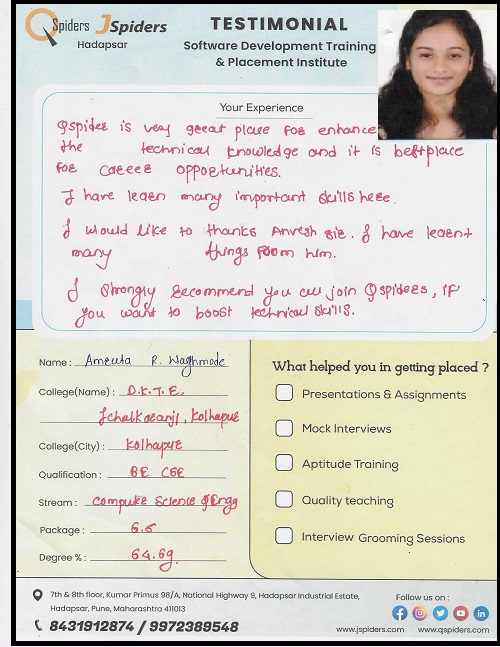 Qspiders JSpiders
Hadapsar
TESTIMONIAL
Software Development Training
& Placement Institute
Your Experience
Qspider is very great place for enhance
the technical knowledge and it is best place
for career opportunities.
I have learn many important skills here.
I would like to thanks Anvesh sir. I have learnt
many things from him.
I strongly recommend you all join Qspiders, if
you want to boost technical skills.
Name : Amruta R. Waghmode
College(Name) : D.K.T.E,
Ichalkaranji, Kolhapur
College(City) : Kolhapur
Qualification : BE CSE
Stream : Computer Science & Engg
Package : 6.5
Degree % : 64.69
What helped you in getting placed ?
Presentations & Assignments
Mock Interviews
Aptitude Training
Quality teaching
Interview Grooming Sessions
7th & 8th floor, Kumar Primus 98/A, National Highway 9, Hadapsar Industrial Estate,
Hadapsar, Pune, Maharashtra 411013
8431912874 / 9972389548
Follow us on :
www.jspiders.com www.qspiders.com